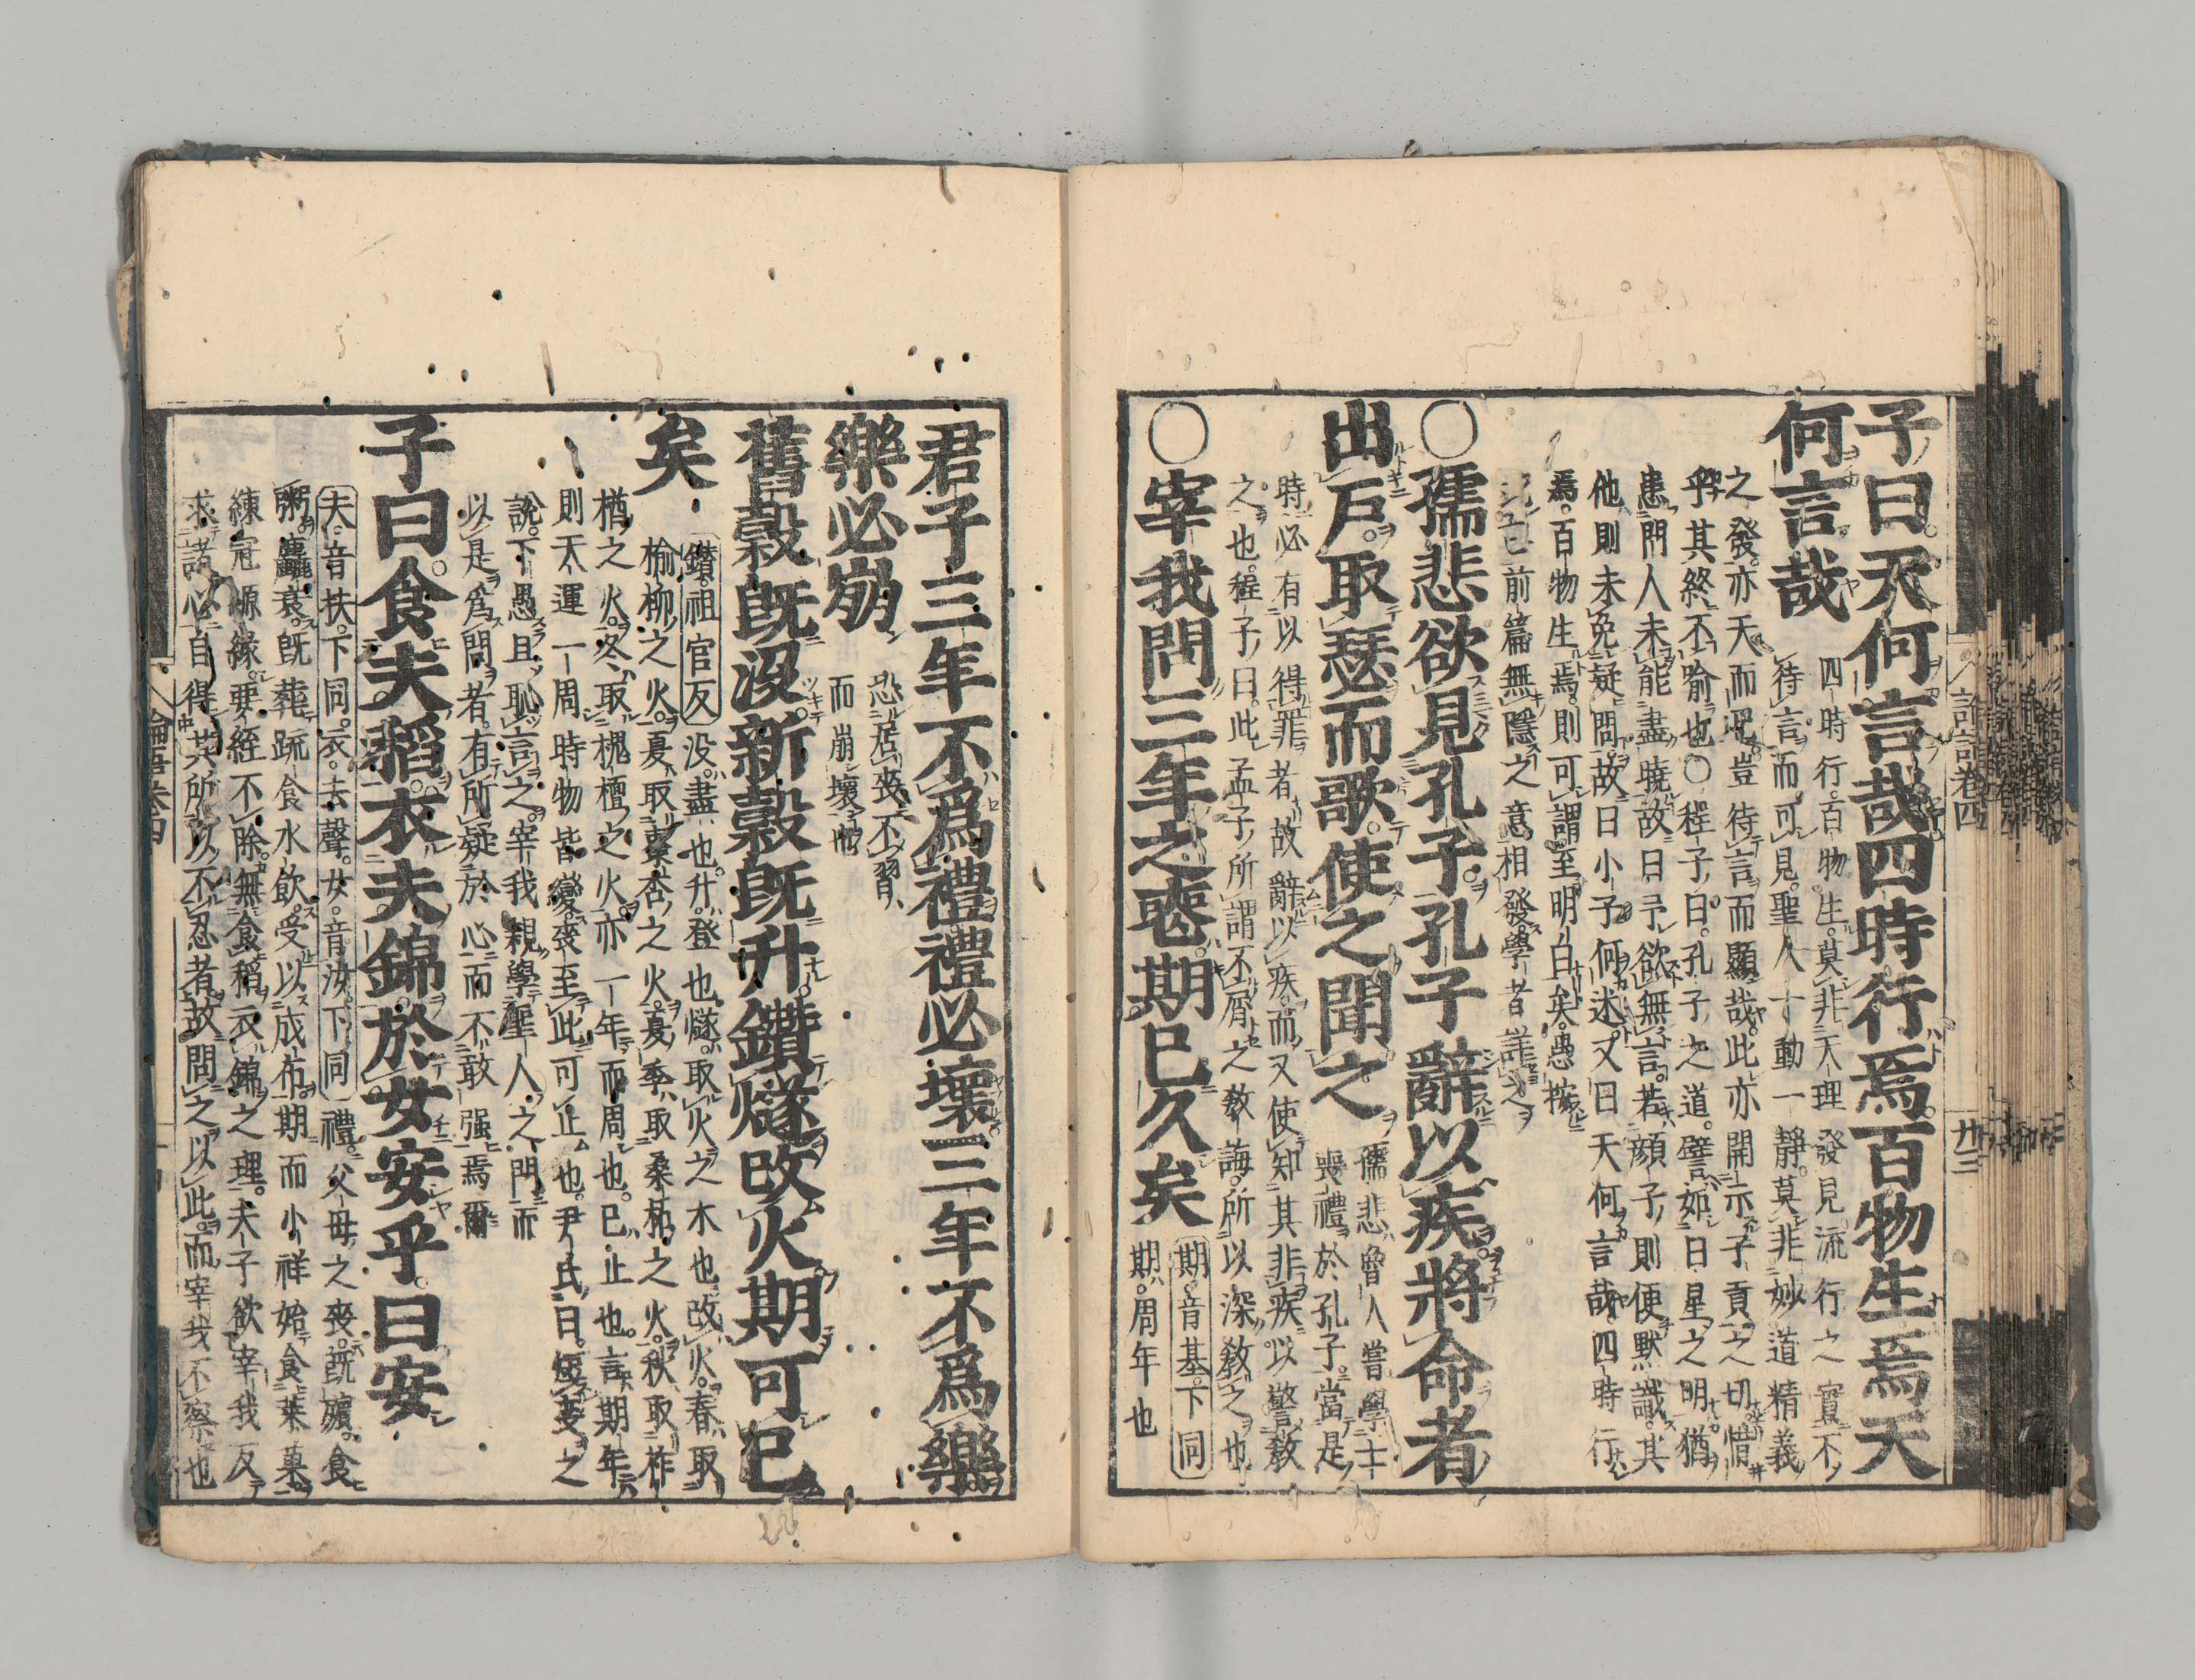 子曰天何言哉四時行焉百物生焉天
何言哉
四時行百物生莫非天理發見流行之實不
待言而可見聖人一動一靜莫非妙道精義
之發亦天而已豈待言而顯哉此亦開示子貢之切惜
乎其終不喻也○程子曰孔子之道譬如日星之明猶
患門人未能盡曉故曰予欲無言若顔子則便默識其
他則未免疑問故曰小子何述又曰天何言哉四時行
焉百物生焉則可謂至明白矣愚按
此與前篇無隱之意相發學者詳之
○孺悲欲見孔子孔子辭以疾將命者
出戸取瑟而歌使之聞之
孺悲魯人嘗學士
喪禮於孔子當是
時必有以得罪者故辭以疾而又使知其非疾以警敎
之也程子曰此孟子所謂不屑之敎誨所以深敎之也
○宰我問三年之喪期已久矣
期音基下同
期周年也
君子三年不爲禮禮必壞三年不爲樂
樂必崩
恐居喪不習
而崩壞也
舊穀既沒新穀既升鑽燧改火期可已
矣
鑽祖官反
没盡也升登也燧取火之木也改火春取
榆柳之火夏取棗杏之火夏季取桑柘之火秋取柞
楢之火冬取槐檀之火亦一年而周也已止也言期年
則天運一周時物皆變喪至此可止也尹氏曰短喪之
說下愚且恥言之宰我親學聖人之門而
以是爲問者有所疑於心而不敢强焉爾
子曰食夫稻衣夫錦於女安乎曰安
夫音扶下同衣去聲女音汝下同
禮父母之喪既殯食
粥麤衰既葬疏食水飮受以成布期而小祥始食菜菓
練冠縓緣要絰不除無食稻衣錦之理夫子欲宰我反
求諸心自得其所以不忍者故問之以此而宰我不察也
論語卷四
論語卷四
廿三